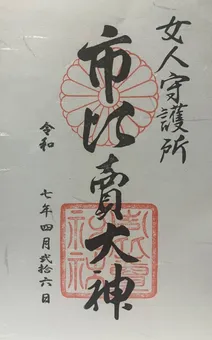 女人守護所
市比賣大神
令和
七年四月弐拾六日